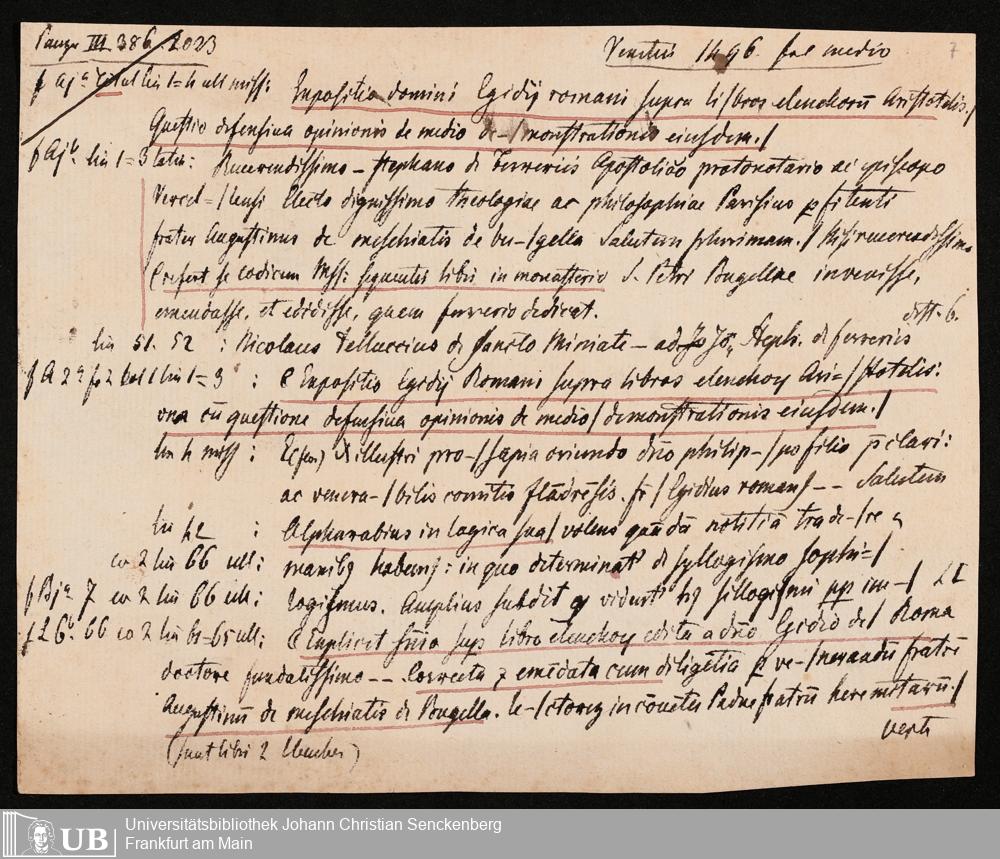 Panzer III 386. 2023
Venetiis 1496. fol medio
7
f aj a tot lin 1=4 ult miss: Expositio domini Egidij romani supra li/bros elenchorū Aristotelis./
Questio defensiua opinionis de medio de-/monstrationis eiusdem./
f Aj b lin 1=3 : Reuerendissimo – Stephano de Ferreriis Apostolico protonotario ac episcopo
Vercel=/lensi Electo dignissimo theologiae ac philosophiae Parisius ꝓfitenti
frater Augustinus de meschiatis de bu-/gella Salutem plurimam./
(refert se codicem Mss: sequentis libri in monasterio S. Petri Bugellae invenisse,
emendasse, et edidisse, quem ferrerio dedicat.
lin 51. 52 : Nicolaus Telluccius de Sancto Miniate – ad Jo., Steph. de ferreriis
dist. 6.
f A 2 a col 1 lin 1=3 : C Expositio Egidij Romani supra libros elenchoꝝ Ari=/stotelis:
vna cū questione defensiua opinionis de medio/ demonstrationis eiusdem./
lin 4 miss : Ex illustri pro-/sapia oriundo dño philip-/po filio p̄clari:
ac venera-/bilis comitis flādrēsis. fr̄/ Egidius roman9 -- Salutem
lin 42 : Alpharabius in logica sua/ volens quādā notitiā trade-/re
co 2 lin 66 ult: manibꝫ habem9: in quo determinat de syllogismo sophi=/
f Bj a 7 co 2 lin 66 ult: logismus. Amplius subdit
f L 6 b 66 co 2 lin 61-65 ult: C Explicit sup libro elenchoꝝ edita a dño Egidio de/ Roma
doctore fundatissimo -- Correcta ⁊ emēdata cum diligētia ꝑ ve-/nerandū fratrē
Augustinū de meschiatis de Bugella. le-/ctorem in cōuētu Padue fratrū heremitarū./
(sunt libri 2 Elenchor)
verte
UB
Universitätsbibliothek Johann Christian Senckenberg
Frankfurt am Main